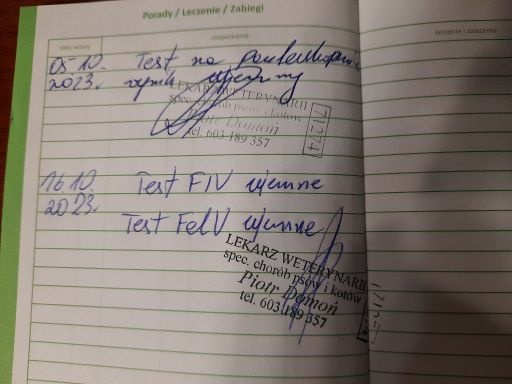 Porady / Leczenie / Zabiegi
data wizyty rozpoznanie leczenie i zalecenia
05-10. Test na
2023. wynik ujemny
LEKARZ WETERYNARII
spec. chorób psów i kotów
Piotr Domoń
tel. 603 189 357
71274
16 10. Test FIV ujemne
2023. Test FelV ujemne
LEKARZ WETERYNARII
spec. chorób psów i kotów
Piotr Domoń
tel. 603 189 357